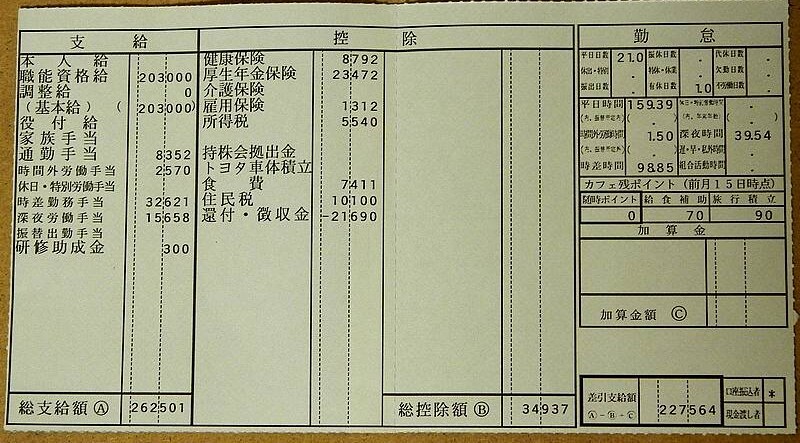 支 給
本 人 給
職能資格給 203000
調整給 0
（基本給） （ 203000）
役 付 給
家 族 手 当
通 勤 手 当 8352
時間外労働手当 2570
休日・特別労働手当
時差勤務手当 32621
深夜労働手当 15658
振替出勤手当
研修助成金 300
総支給額 Ⓐ 262501
控 除
健康保険 8792
厚生年金保険 23472
介護保険
雇用保険 1312
所得税 5540
持株会拠出金
トヨタ車体積立
食 費 7411
住民税 10100
還付・徴収金 -21690
総控除額 Ⓑ 34937
勤 怠
平日日数 21.0 振休日数 . 代休日数 .
休出・特別 . 特休・休業 . 欠勤日数 .
振出日数 . 有休日数 1.0 不労働日数 .
平日時間 159.39
時間外労働時間 1.50 深夜時間 39.54
遅・早・私外時間
時差時間 98.85 組合活動時間
カフェ残ポイント（前月15日時点）
随時ポイント 給食補助 旅行積立
0 70 90
加 算 金
加算金額 Ⓒ
差引支給額 227564
Ⓐ－Ⓑ＋Ⓒ
口座振込者 *
現金渡し者